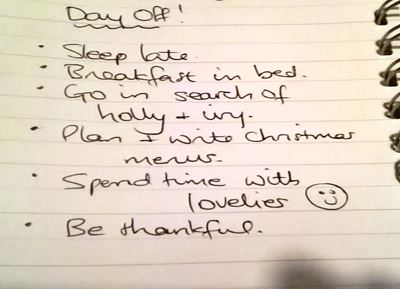 Day Off!
• Sleep late.
• Breakfast in bed.
• Go in search of
holly + ivy.
• Plan + write Christmas
menus.
• Spend time with
lovelies
• Be thankful.